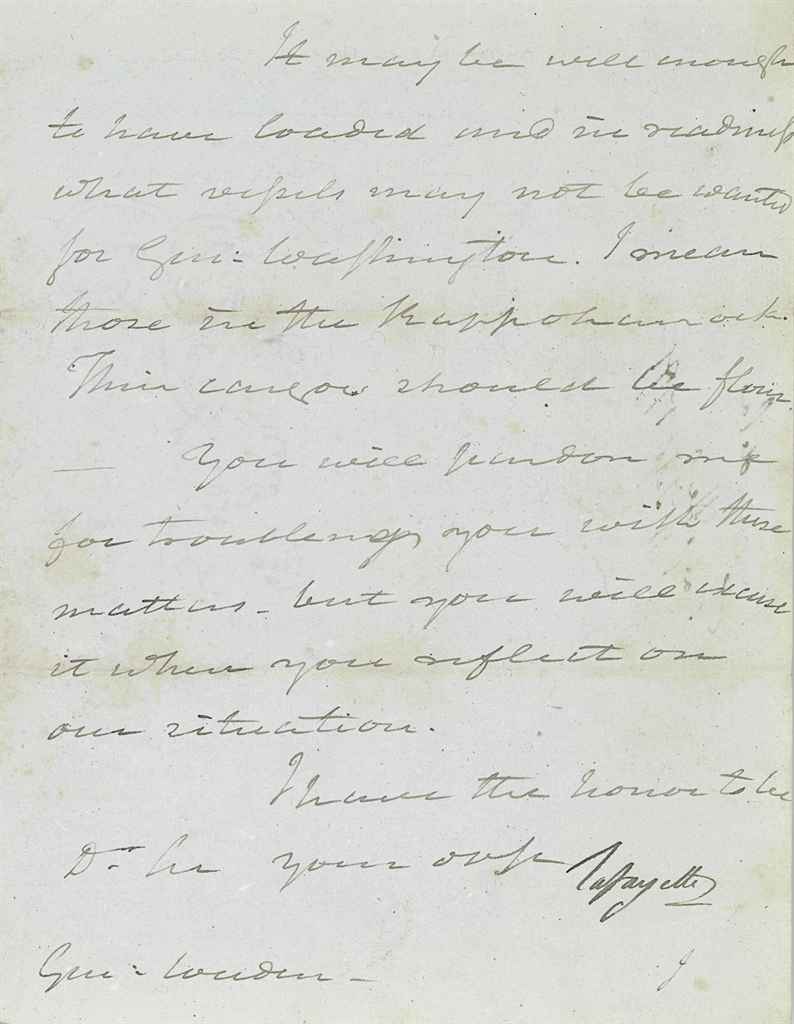 It may be well enough
to have loaded and in readiness
what vessels may not be wanted
for Gen: Washington. I mean
those in the Rappohannock.
Their cargoe should be flour
— You will pardon me
for troubleing you with these
matters - but you will excuse
it when you reflect on
our situation.
I have the honor to be
Dr. Sir your
Lafayette
Gen: Weedon -